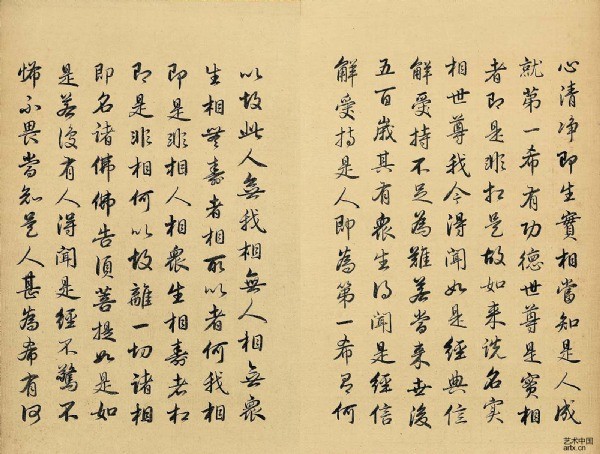 心清淨即生實相當知是人成
就第一希有功德世尊是實相
者即是非相是故如来說名實
相世尊我今得聞如是經典信
解受持不足為難若當来世後
五百歲其有眾生得聞是經信
解受持是人即為第一希有何
以故此人無我相無人相無眾
生相無壽者相所以者何我相
即是非相人相眾生相壽者相
即是非相何以故離一切諸相
即名諸佛佛告須菩提如是如
是若復有人得聞是經不驚不
怖不畏當知是人甚為希有何
艺术中国
artx.cn